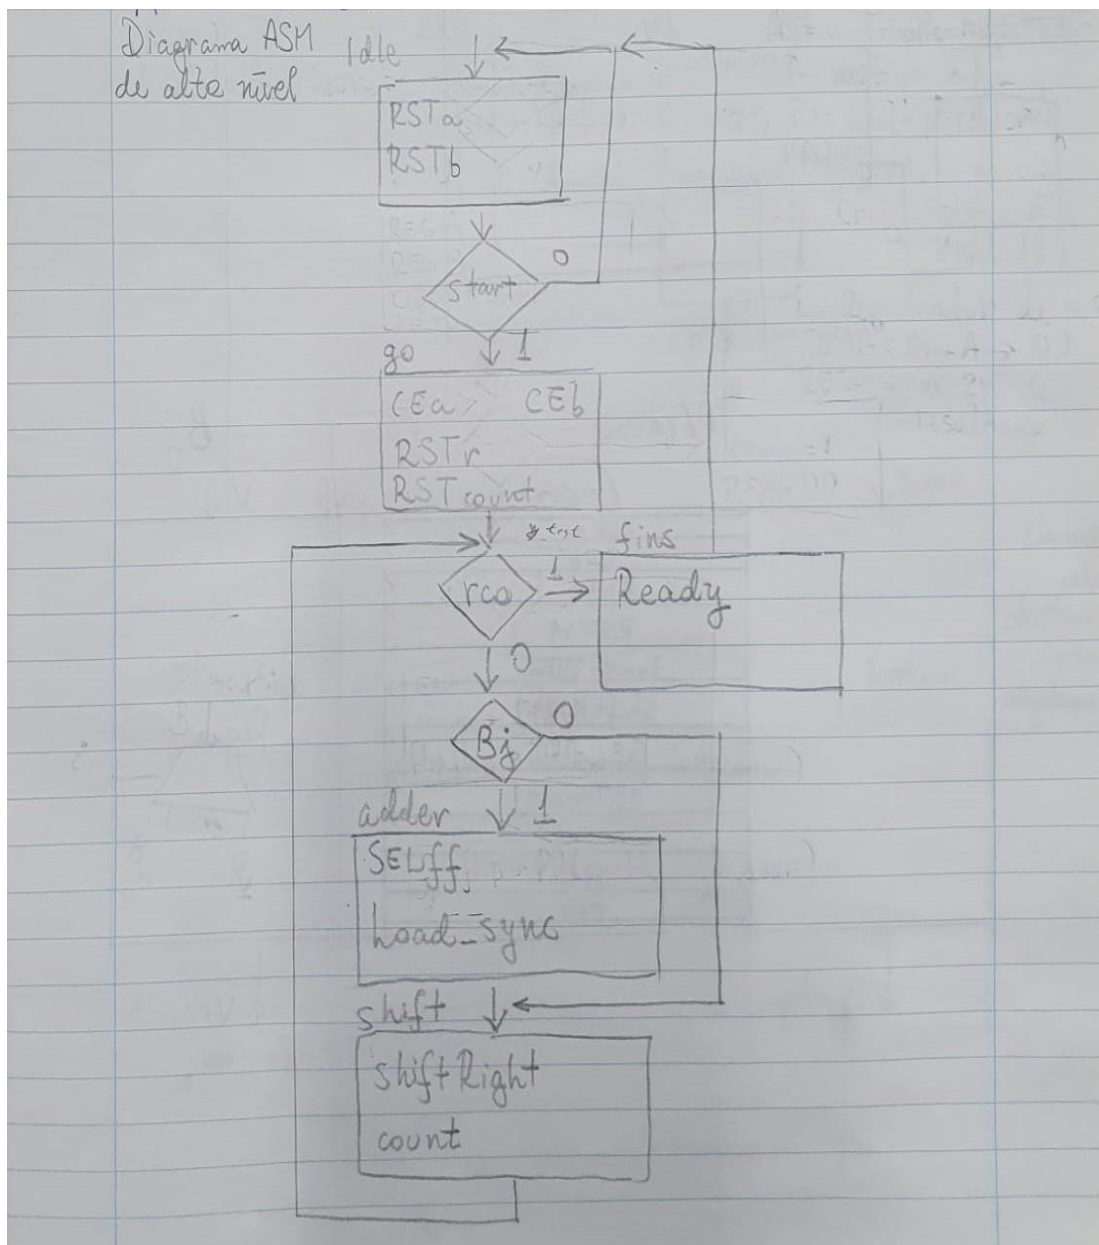 Diagrama ASM
de alto nível
Idle
RSTa
RSTb
start
0
1
go
CEa CEb
RSTr
RSTcount
test
fins
rco
1
Ready
0
Bj
0
adder
1
SELff
Load_sync
shift
shiftRight
count